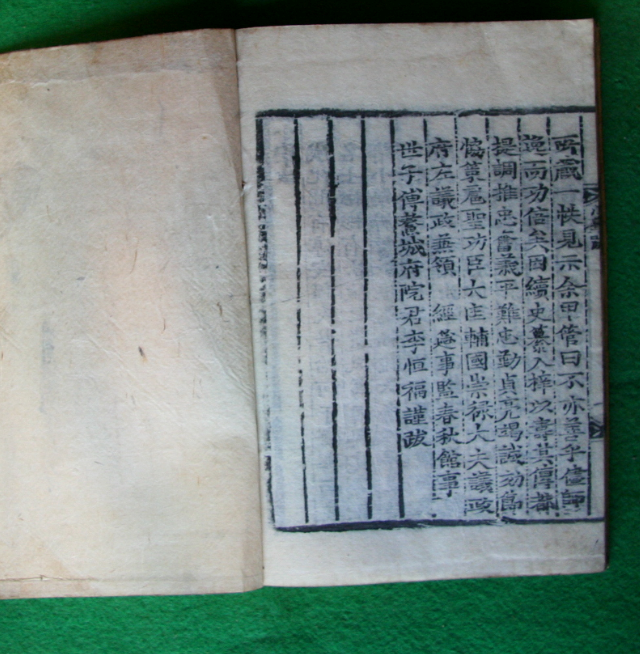 所藏一帙見示余曰不亦善乎
而功倍矣因續史纂入梓以壽其傳都
提調推忠奮義平難忠勤貞亮竭誠効節
協策扈聖功臣大匡輔國崇祿大夫議政
府左議政兼領 經筵事監春秋館事
世子傅鰲城府院君李恒福謹跋